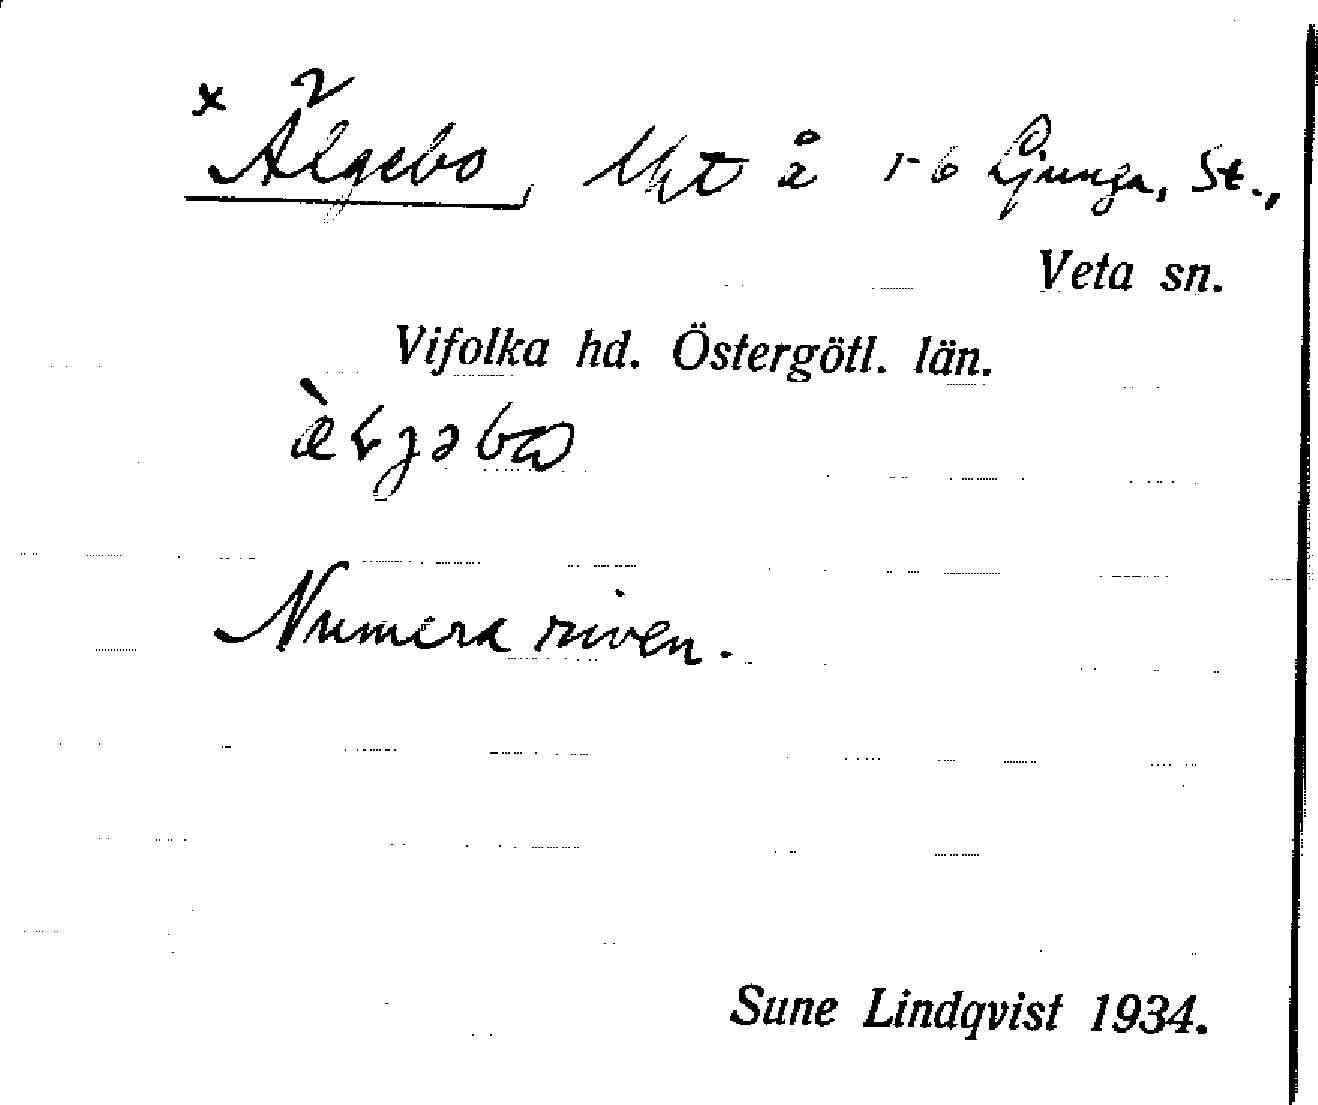 x Älgebo, lht å 1-6 Ljunga, St.,
Veta sn.
Vifolka hd. Östergötl. län.
Numera riven.
Sune Lindqvist 1934.